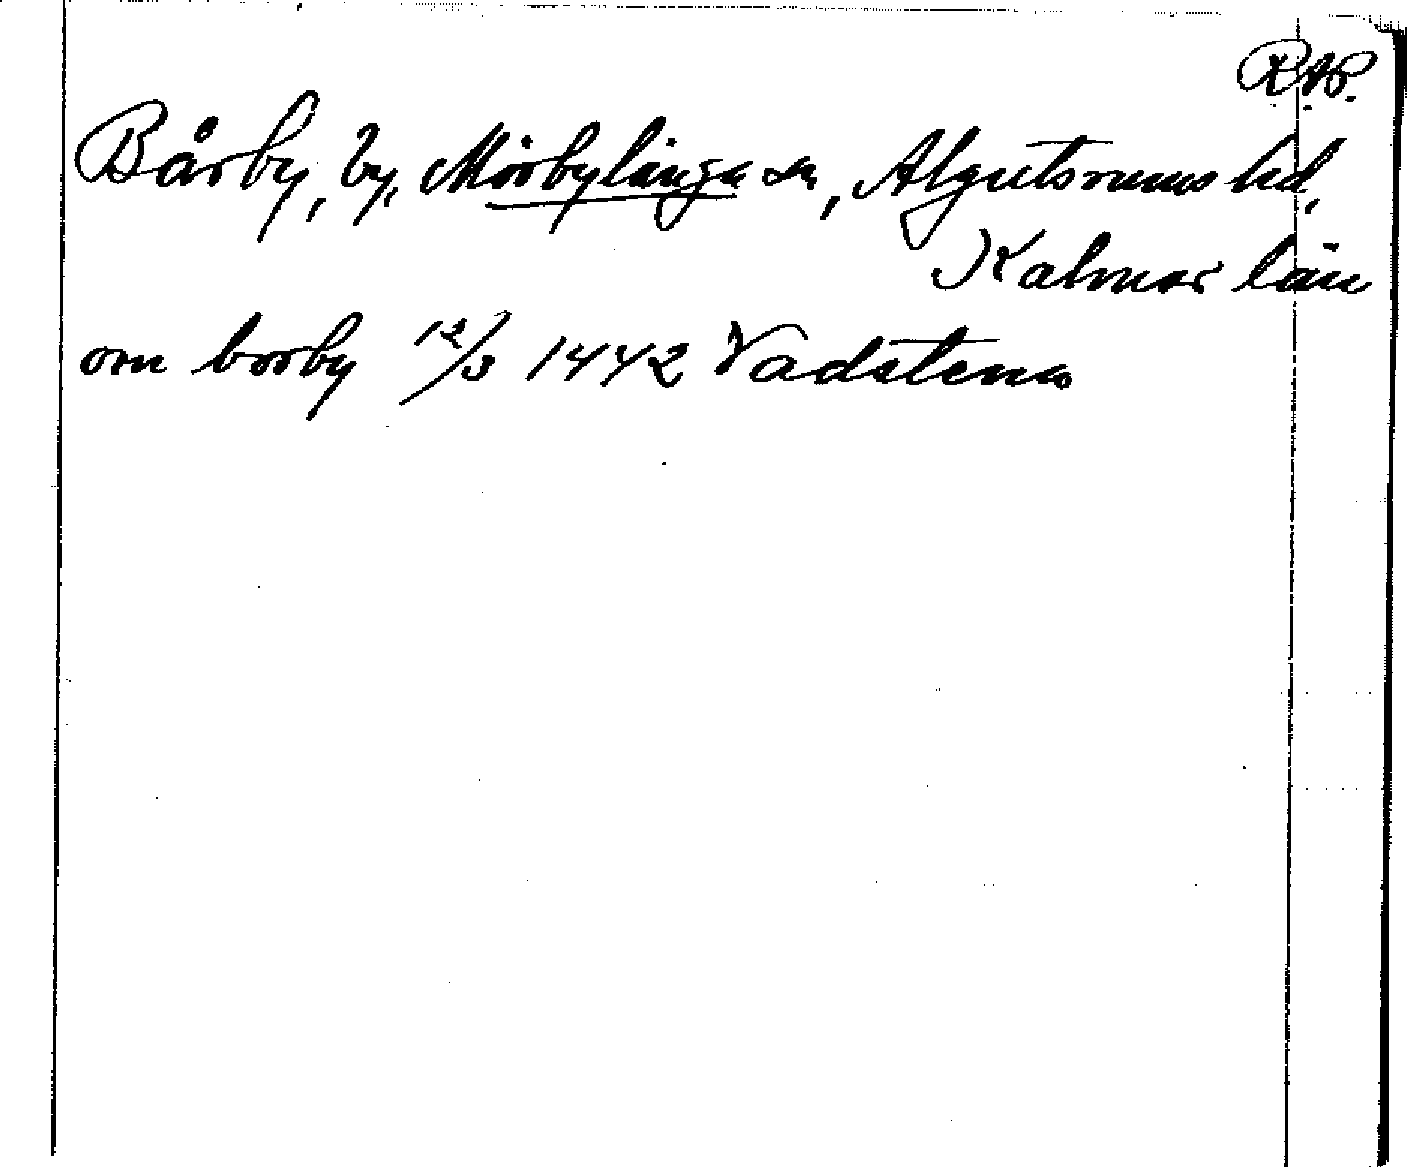 R.A.P.
Bårby, by, Mörbylånga sn, Algutsrums hd,
Kalmar län
om borby 12/3 1442 Vadstena